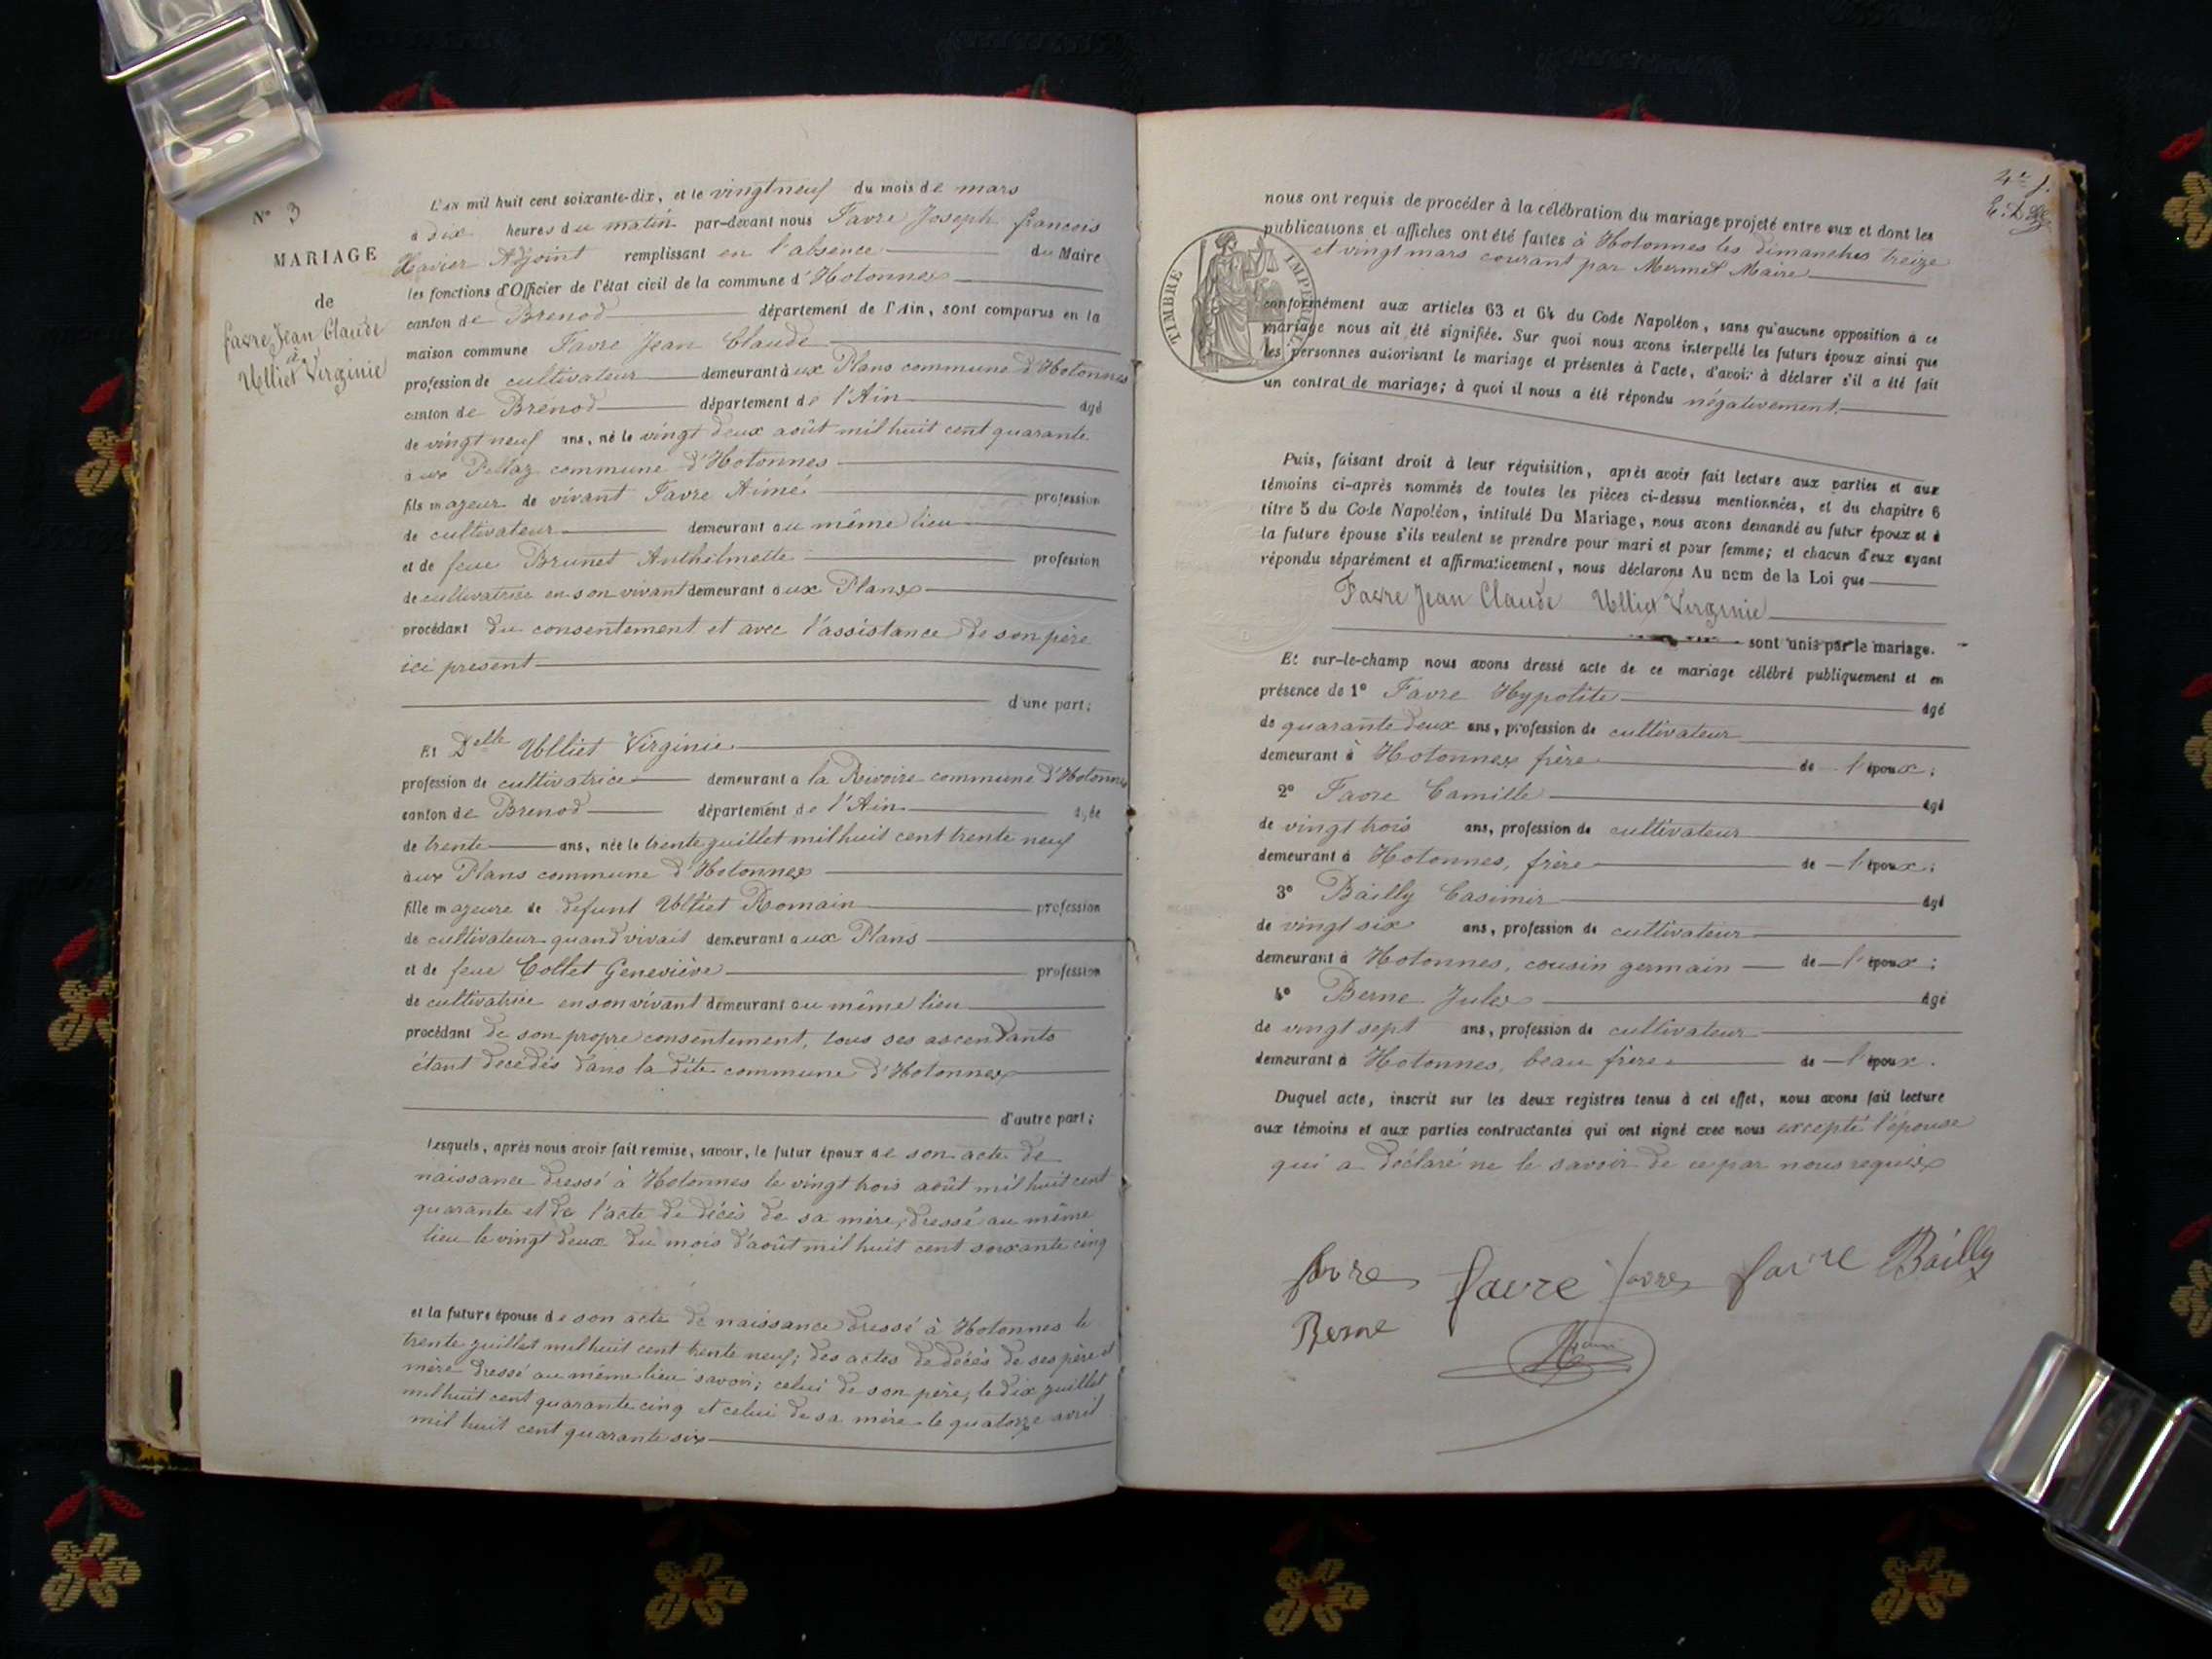 N° 3
MARIAGE
de
favre Jean Claude
à
Ulliet Virginie
L'AN mil huit cent soixante-dix, et le vingt neuf du mois de mars
à dix heures du matin par-devant nous Favre Joseph françois
Xavier Adjoint remplissant en l'absence du Maire
les fonctions d'Officier de l'état civil de la commune d'Hotonnes
canton de Brenod département de l'Ain, sont comparus en la
maison commune Favre Jean Claude
profession de cultivateur demeurant aux Plans commune d'Hotonnes
canton de Brénod département de l'Ain agé
de vingt neuf ans, né le vingt deux août mil huit cent quarante
aux Pellaz commune d'Hotonnes
fils majeur de vivant Favre Aimé profession
de cultivateur demeurant au même lieu
et de feue Brunet Anthelmette profession
de cultivatrice en son vivant demeurant aux Plans
procédant du consentement et avec l'assistance de son père
ici présent
d'une part;
Et Delle Ulliet Virginie
profession de cultivatrice demeurant à la Rivoire commune d'Hotonnes
canton de Brenod département de l'Ain agée
de trente ans, née le trente juillet mil huit cent trente neuf
aux Plans commune d'Hotonnes
fille majeure de défunt Ulliet Romain profession
de cultivateur quand vivait demeurant aux Plans
et de feue Collet Geneviève profession
de cultivatrice en son vivant demeurant au même lieu
procédant de son propre consentement, tous ses ascendants
étant décédés dans la dite commune d'Hotonnes
d'autre part;
lesquels, après nous avoir fait remise, savoir, le futur époux de son acte de
naissance dressé à Hotonnes le vingt trois août mil huit cent
quarante et de l'acte de décès de sa mère, dressé au même
lieu le vingt deux du mois d'août mil huit cent soixante cinq
et la future épouse de son acte de naissance dressé à Hotonnes le
trente juillet mil huit cent trente neuf; des actes de décès de ses père et
mère dressé au même lieu savoir; celui de son père, le dix juillet
mil huit cent quarante cinq et celui de sa mère le quatorze avril
mil huit cent quarante six
4e f.
TIMBRE IMPERIAL
nous ont requis de procéder à la célébration du mariage projeté entre eux et dont les
publications et affiches ont été faites à Hotonnes les dimanches treize
et vingt mars courant par Mermet Maire
conformément aux articles 63 et 64 du Code Napoléon, sans qu'aucune opposition à ce
mariage nous ait été signifiée. Sur quoi nous avons interpellé les futurs époux ainsi que
les personnes autorisant le mariage et présentes à l'acte, d'avoir à déclarer s'il a été fait
un contrat de mariage; à quoi il nous a été répondu négativement.
Puis, faisant droit à leur réquisition, après avoir fait lecture aux parties et aux
témoins ci-après nommés de toutes les pièces ci-dessus mentionnées, et du chapitre 6
titre 5 du Code Napoléon, intitulé Du Mariage, nous avons demandé au futur époux et à
la future épouse s'ils veulent se prendre pour mari et pour femme; et chacun d'eux ayant
répondu séparément et affirmativement, nous déclarons Au nom de la Loi que
Favre Jean Claude Ulliet Virginie
sont unis par le mariage.
Et sur-le-champ nous avons dressé acte de ce mariage célébré publiquement et en
présence de 1° Favre Hypolite agé
de quarante deux ans, profession de cultivateur
demeurant à Hotonnes frère de l'époux;
2° Favre Camille agé
de vingt trois ans, profession de cultivateur
demeurant à Hotonnes, frère de l'époux;
3° Bailly Casimir agé
de vingt six ans, profession de cultivateur
demeurant à Hotonnes, cousin germain de l'époux;
4° Berne Jules agé
de vingt sept ans, profession de cultivateur
demeurant à Hotonnes, beau frère de l'époux.
Duquel acte, inscrit sur les deux registres tenus à cet effet, nous avons fait lecture
aux témoins et aux parties contractantes qui ont signé avec nous excepté l'épouse
qui a déclaré ne le savoir de ce par nous requis
favre favre favre favre Bailly
Berne